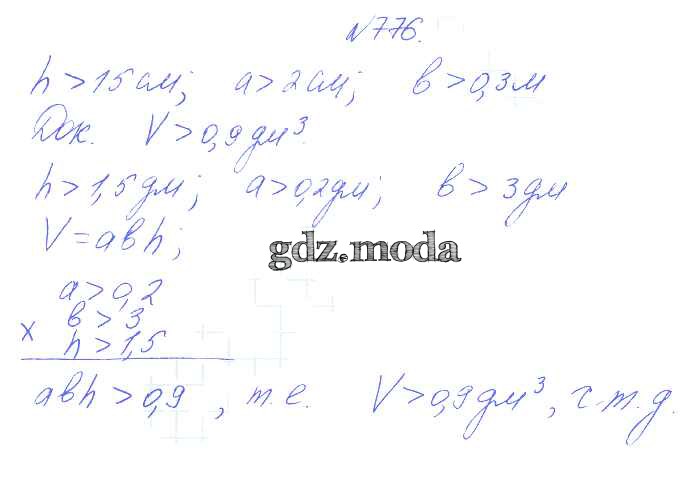 №776.
h > 15 см; a > 2 см; в > 0,3 м
Док. V > 0,9 дм³.
h > 1,5 дм; a > 0,2 дм; в > 3 дм
V = aвh;
gdz.moda
a > 0,2
в > 3
× h > 1,5
aвh > 0,9, т.е. V > 0,9 дм³, ч.т.д.